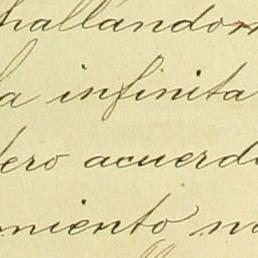 hallándom
la infinita
ero acuerd
miento n